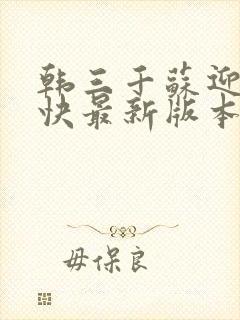 韩三千蘇迎
快最新版本
毋保良